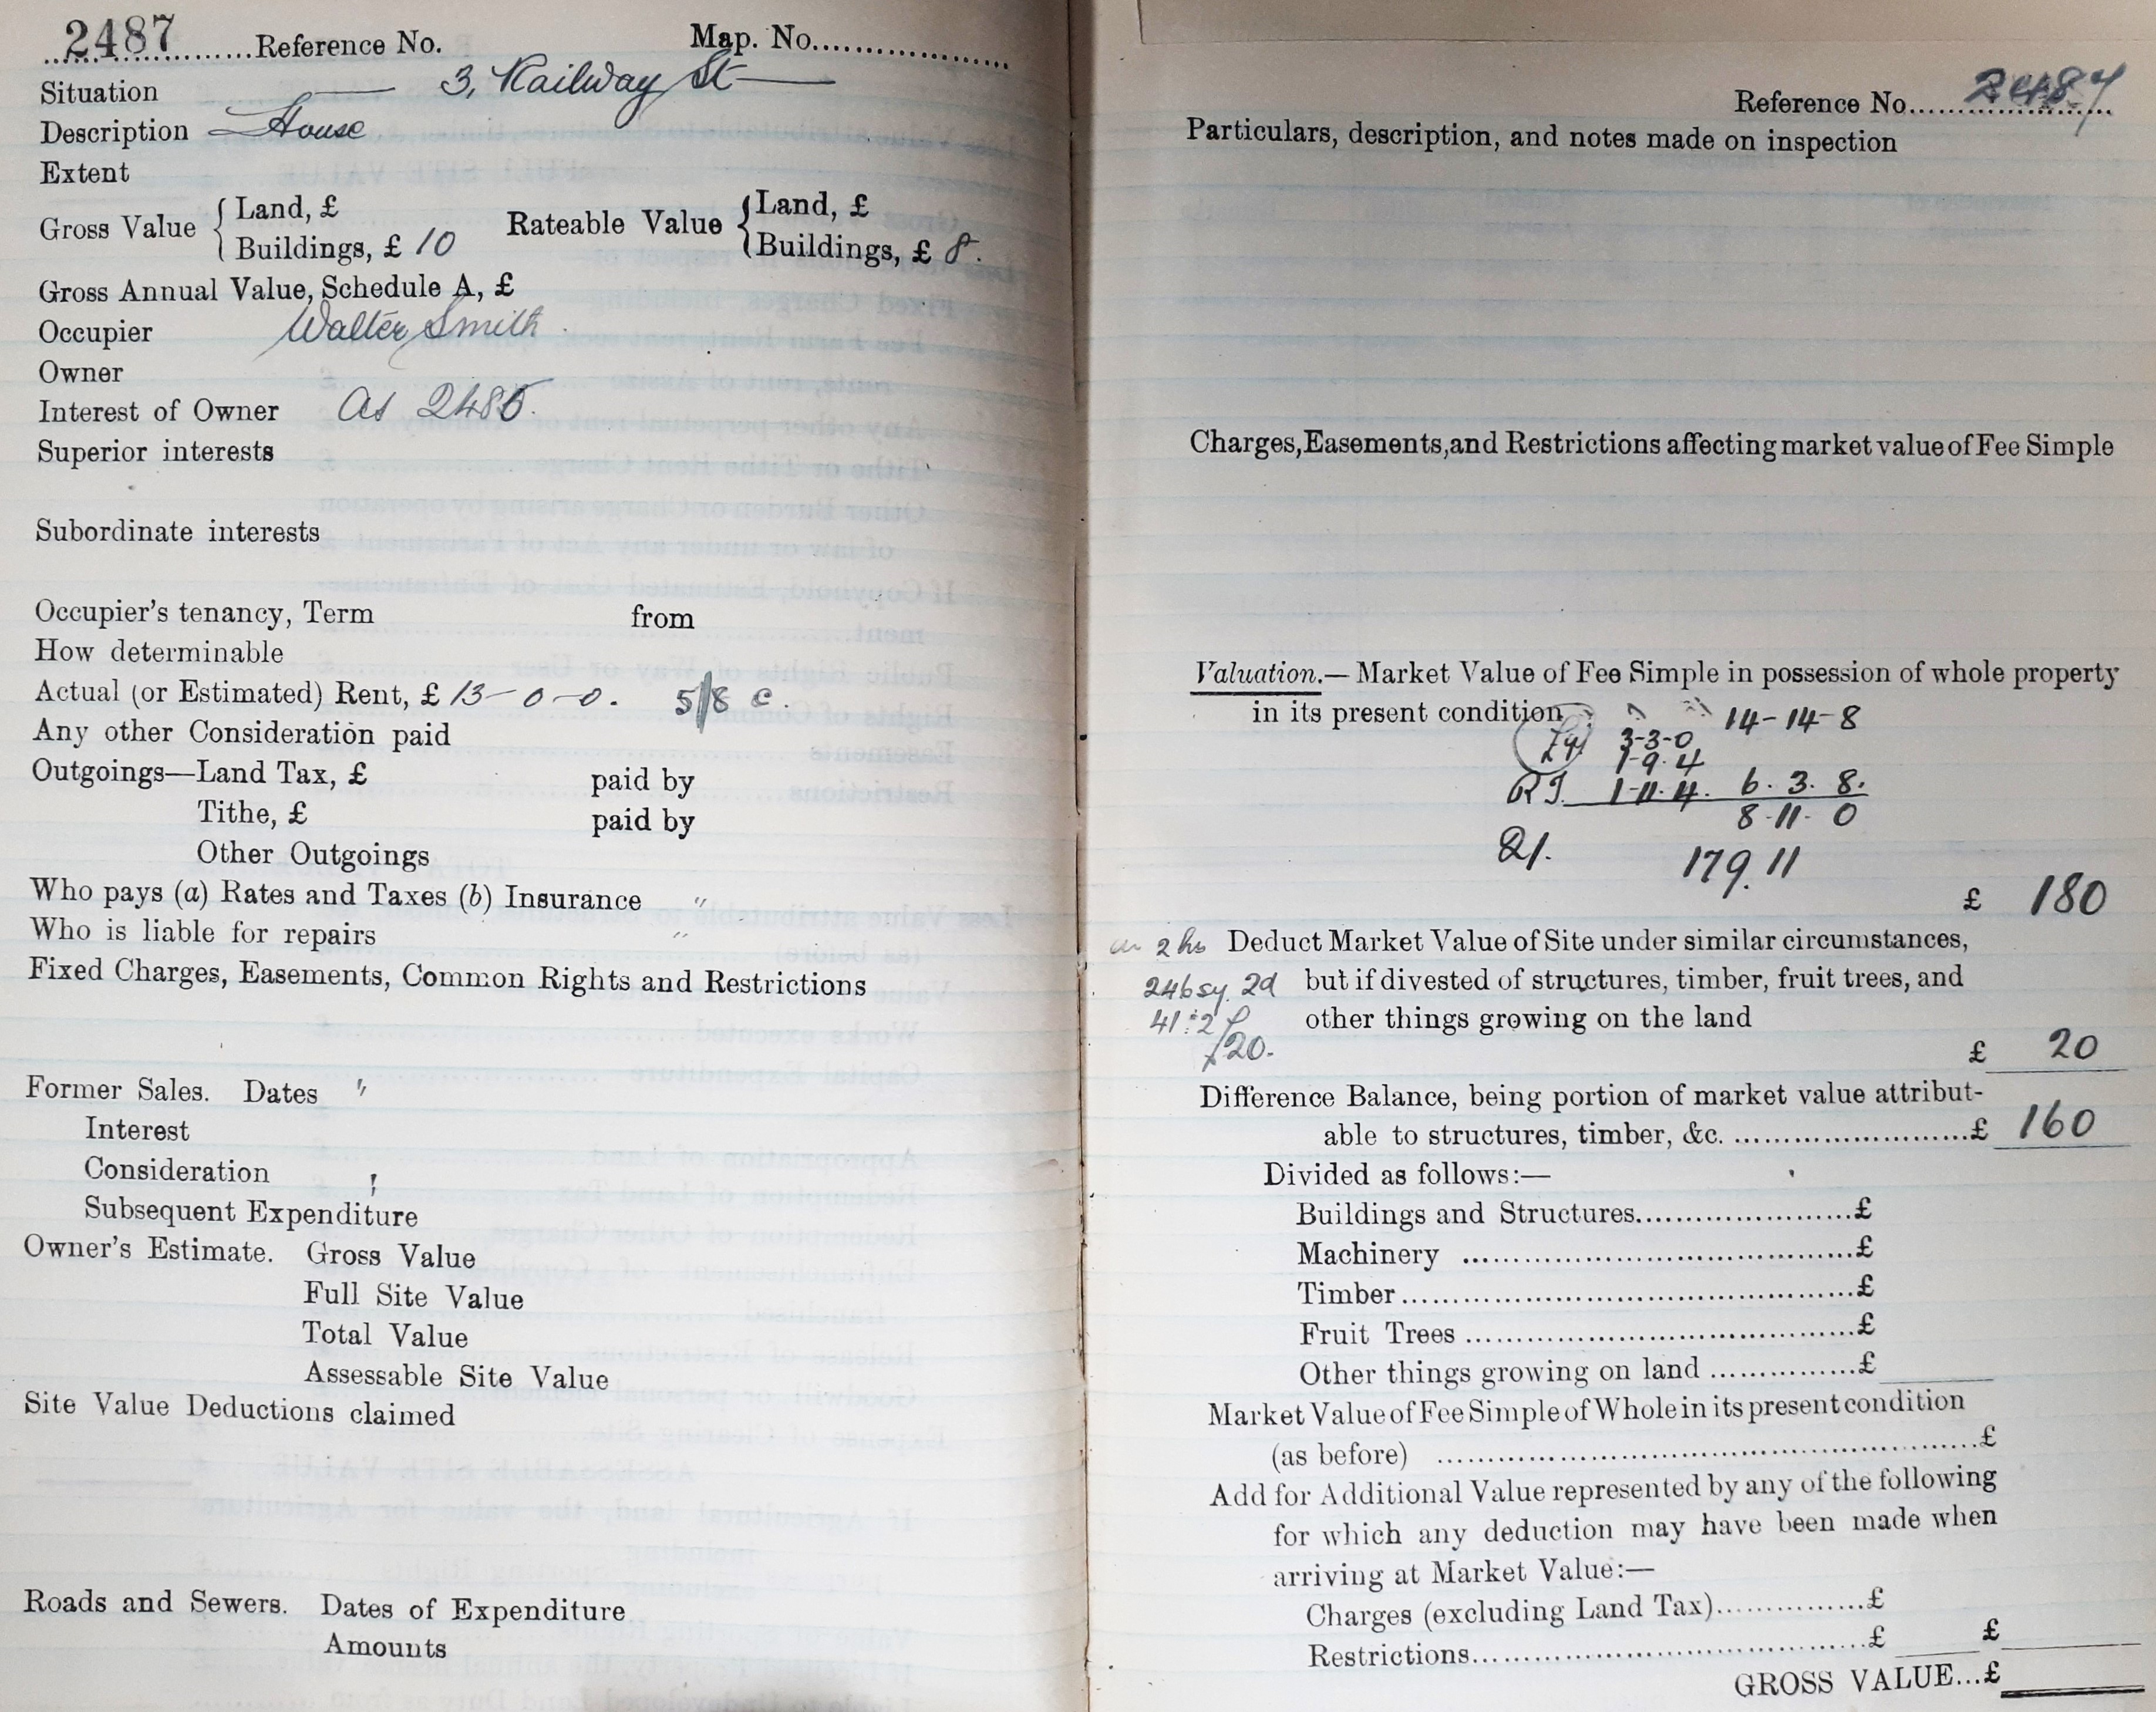 2487 Reference No. Map. No.
Situation 3, Railway St
Description House
Extent
Gross Value { Land, £ Rateable Value { Land, £
Buildings, £ 10 Buildings, £ 8.
Gross Annual Value, Schedule A, £
Occupier Walter Smith
Owner
Interest of Owner As 2485.
Superior interests
Subordinate interests
Occupier's tenancy, Term from
How determinable
Actual (or Estimated) Rent, £ 13-0-0. 5/8 c.
Any other Consideration paid
Outgoings—Land Tax, £ paid by
Tithe, £ paid by
Other Outgoings
Who pays (a) Rates and Taxes (b) Insurance "
Who is liable for repairs "
Fixed Charges, Easements, Common Rights and Restrictions
Former Sales. Dates "
Interest
Consideration
Subsequent Expenditure
Owner's Estimate. Gross Value
Full Site Value
Total Value
Assessable Site Value
Site Value Deductions claimed
Roads and Sewers. Dates of Expenditure
Amounts
Reference No. 2487
Particulars, description, and notes made on inspection
Charges, Easements, and Restrictions affecting market value of Fee Simple
Valuation.— Market Value of Fee Simple in possession of whole property
in its present condition 14-14-8
3-3-0
1-9-4
1-11-4. 6. 3. 8.
8-11-0
21. 179.11
£ 180
2 hs Deduct Market Value of Site under similar circumstances,
246 sy. 2d but if divested of structures, timber, fruit trees, and
other things growing on the land
£20.
£ 20
Difference Balance, being portion of market value attribut-
able to structures, timber, &c. £ 160
Divided as follows:—
Buildings and Structures £
Machinery £
Timber £
Fruit Trees £
Other things growing on land £
Market Value of Fee Simple of Whole in its present condition
(as before) £
Add for Additional Value represented by any of the following
for which any deduction may have been made when
arriving at Market Value:—
Charges (excluding Land Tax) £
Restrictions £ £
GROSS VALUE...£